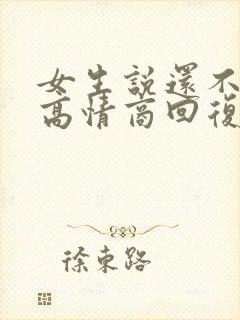 女生說還不
高情商回復
徐東路